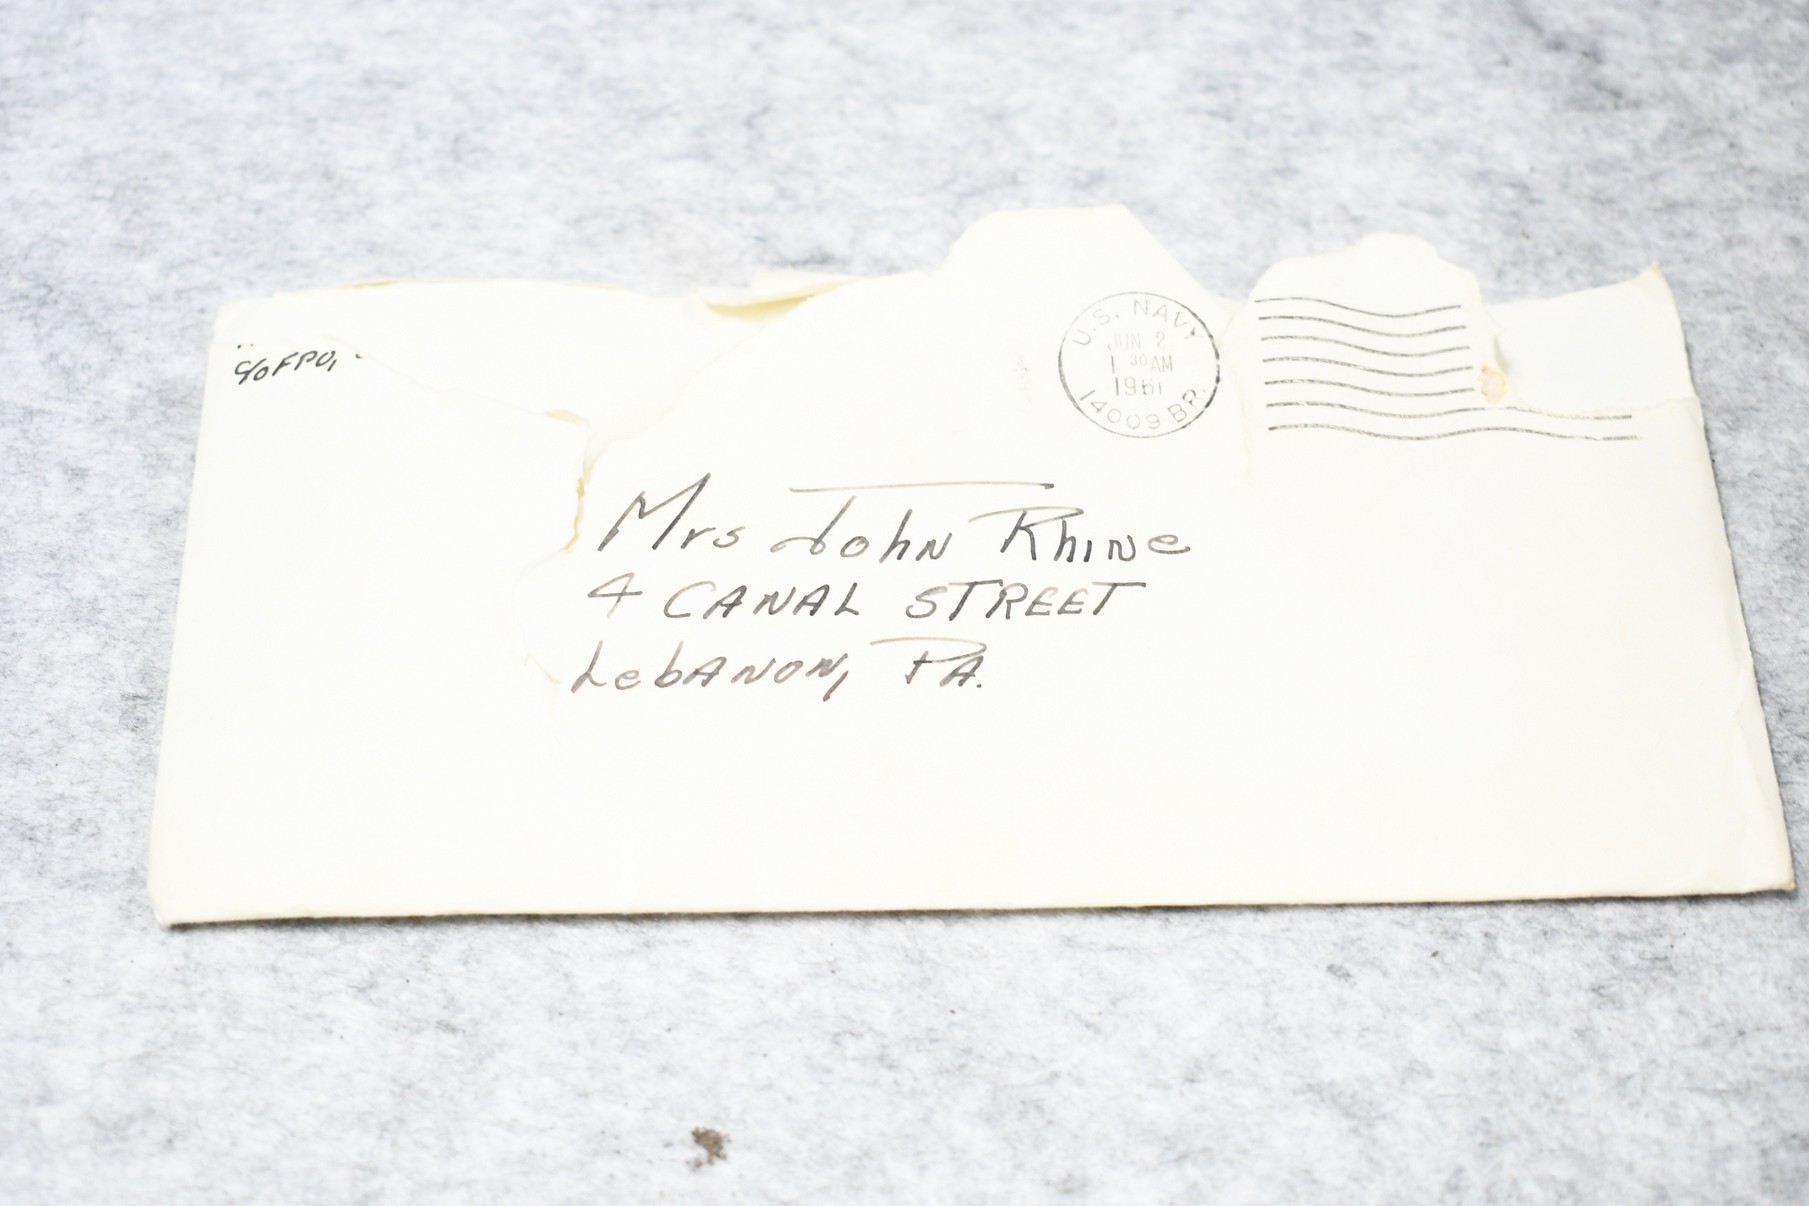 c/o FPO,
U.S. NAVY
JUN 2
1 30 AM
1961
14009 BR.
Mrs John Rhine
4 CANAL STREET
LebANON, PA.